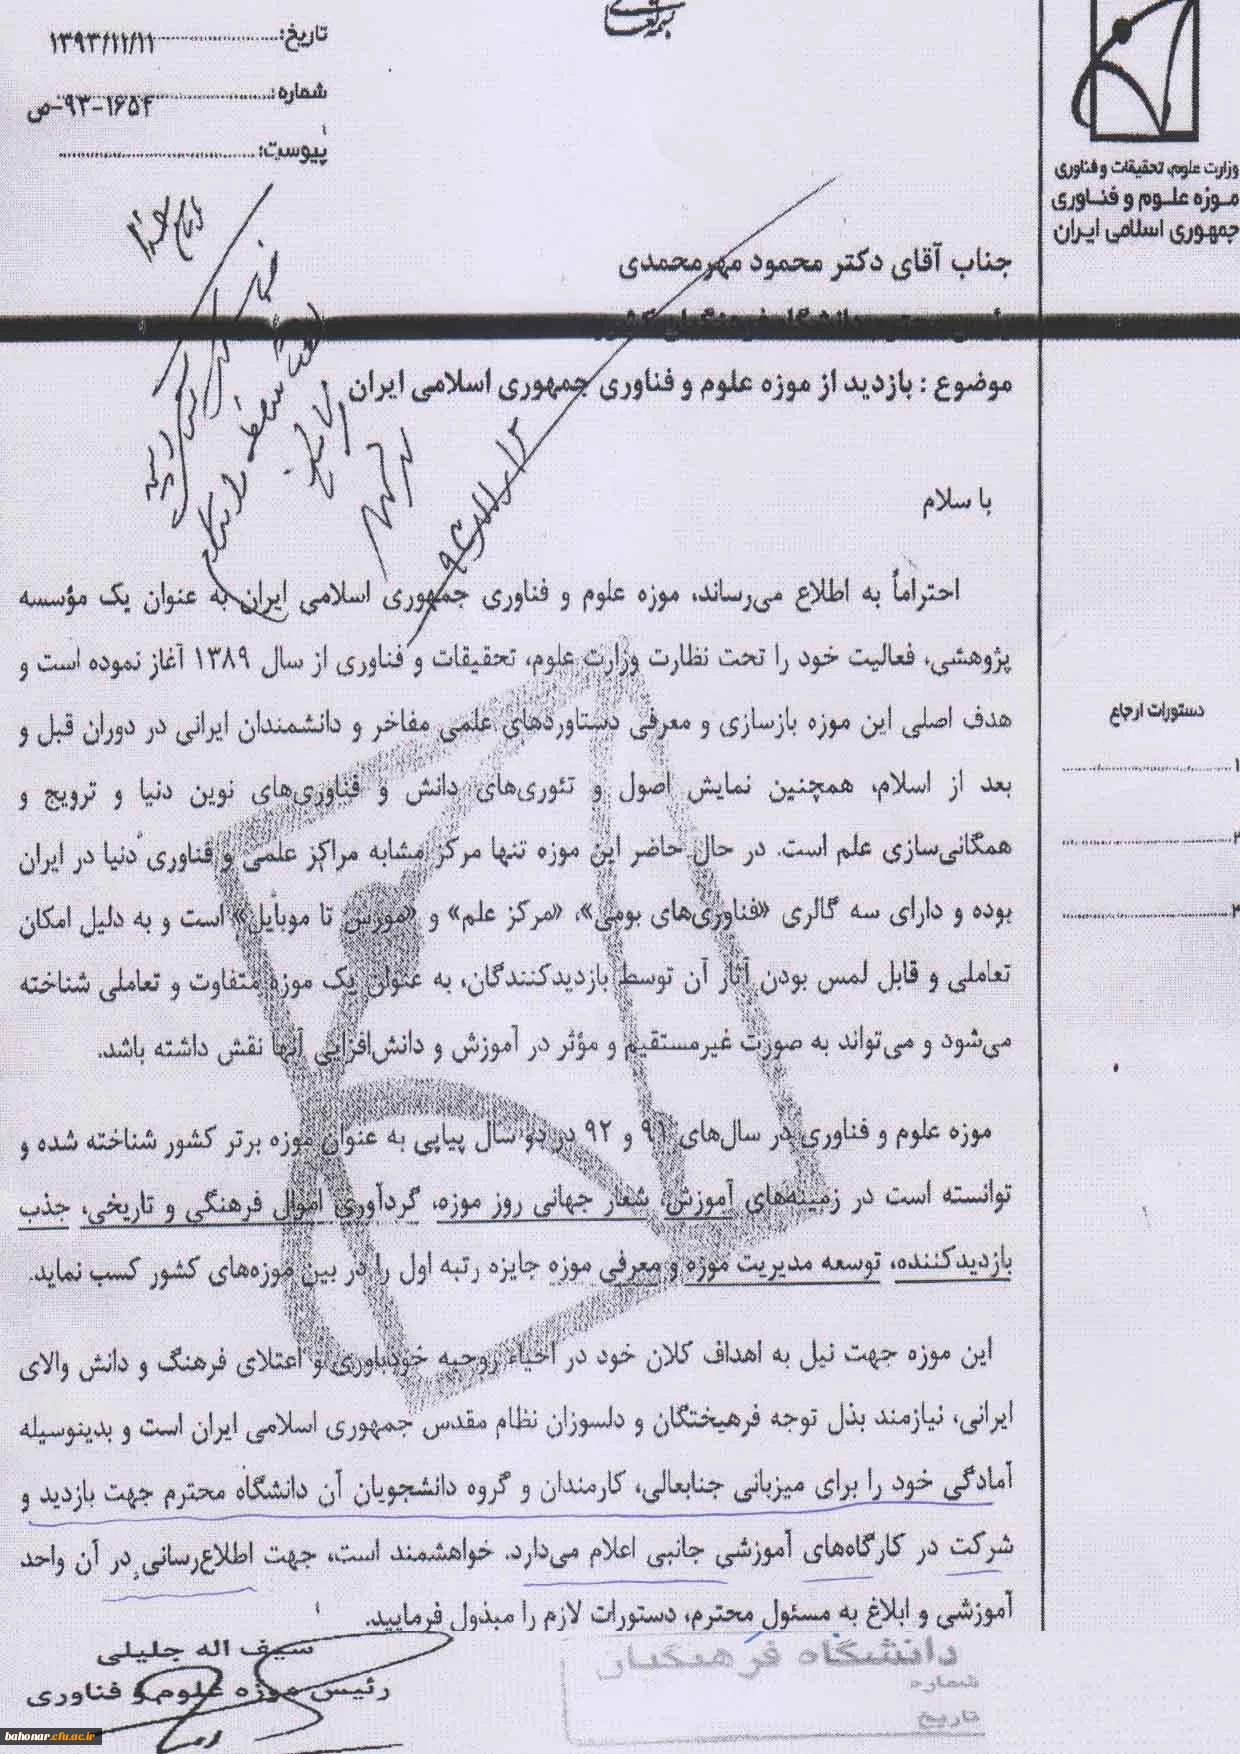 بسمه تعالی
تاریخ: ۱۳۹۳/۱۱/۱۱
شماره: ۱۶۵۴-۹۳-ص
پیوست:
وزارت علوم، تحقیقات و فناوری
موزه علوم و فناوری
جمهوری اسلامی ایران
جناب آقای دکتر محمود مهرمحمدی
موضوع : بازدید از موزه علوم و فناوری جمهوری اسلامی ایران
با سلام
احتراماً به اطلاع می‌رساند، موزه علوم و فناوری جمهوری اسلامی ایران به عنوان یک مؤسسه
پژوهشی، فعالیت خود را تحت نظارت وزارت علوم، تحقیقات و فناوری از سال ۱۳۸۹ آغاز نموده است و
هدف اصلی این موزه بازسازی و معرفی دستاوردهای علمی مفاخر و دانشمندان ایرانی در دوران قبل و
بعد از اسلام، همچنین نمایش اصول و تئوری‌های دانش و فناوری‌های نوین دنیا و ترویج و
همگانی‌سازی علم است. در حال حاضر این موزه تنها مرکز مشابه مراکز علمی و فناوری دنیا در ایران
بوده و دارای سه گالری «فناوری‌های بومی»، «مرکز علم» و «مورس تا موبایل» است و به دلیل امکان
تعاملی و قابل لمس بودن آثار آن توسط بازدیدکنندگان، به عنوان یک موزه متفاوت و تعاملی شناخته
می‌شود و می‌تواند به صورت غیرمستقیم و مؤثر در آموزش و دانش‌افزایی آنها نقش داشته باشد.
موزه علوم و فناوری در سال‌های ۹۱ و ۹۲ در دو سال پیاپی به عنوان موزه برتر کشور شناخته شده و
توانسته است در زمینه‌های آموزش، شعار جهانی روز موزه، گردآوری اموال فرهنگی و تاریخی، جذب
بازدیدکننده، توسعه مدیریت موزه و معرفی موزه جایزه رتبه اول را در بین موزه‌های کشور کسب نماید.
این موزه جهت نیل به اهداف کلان خود در احیاء روحیه خودباوری و اعتلای فرهنگ و دانش والای
ایرانی، نیازمند بذل توجه فرهیختگان و دلسوزان نظام مقدس جمهوری اسلامی ایران است و بدینوسیله
آمادگی خود را برای میزبانی جنابعالی، کارمندان و گروه دانشجویان آن دانشگاه محترم جهت بازدید و
شرکت در کارگاه‌های آموزشی جانبی اعلام می‌دارد. خواهشمند است، جهت اطلاع‌رسانی در آن واحد
آموزشی و ابلاغ به مسئول محترم، دستورات لازم را مبذول فرمایید.
سیف اله جلیلی
رئیس موزه علوم و فناوری
دستورات ارجاع
۱
۲
۳
دانشگاه فرهنگیان
شماره
تاریخ
bahonar.cfu.ac.ir